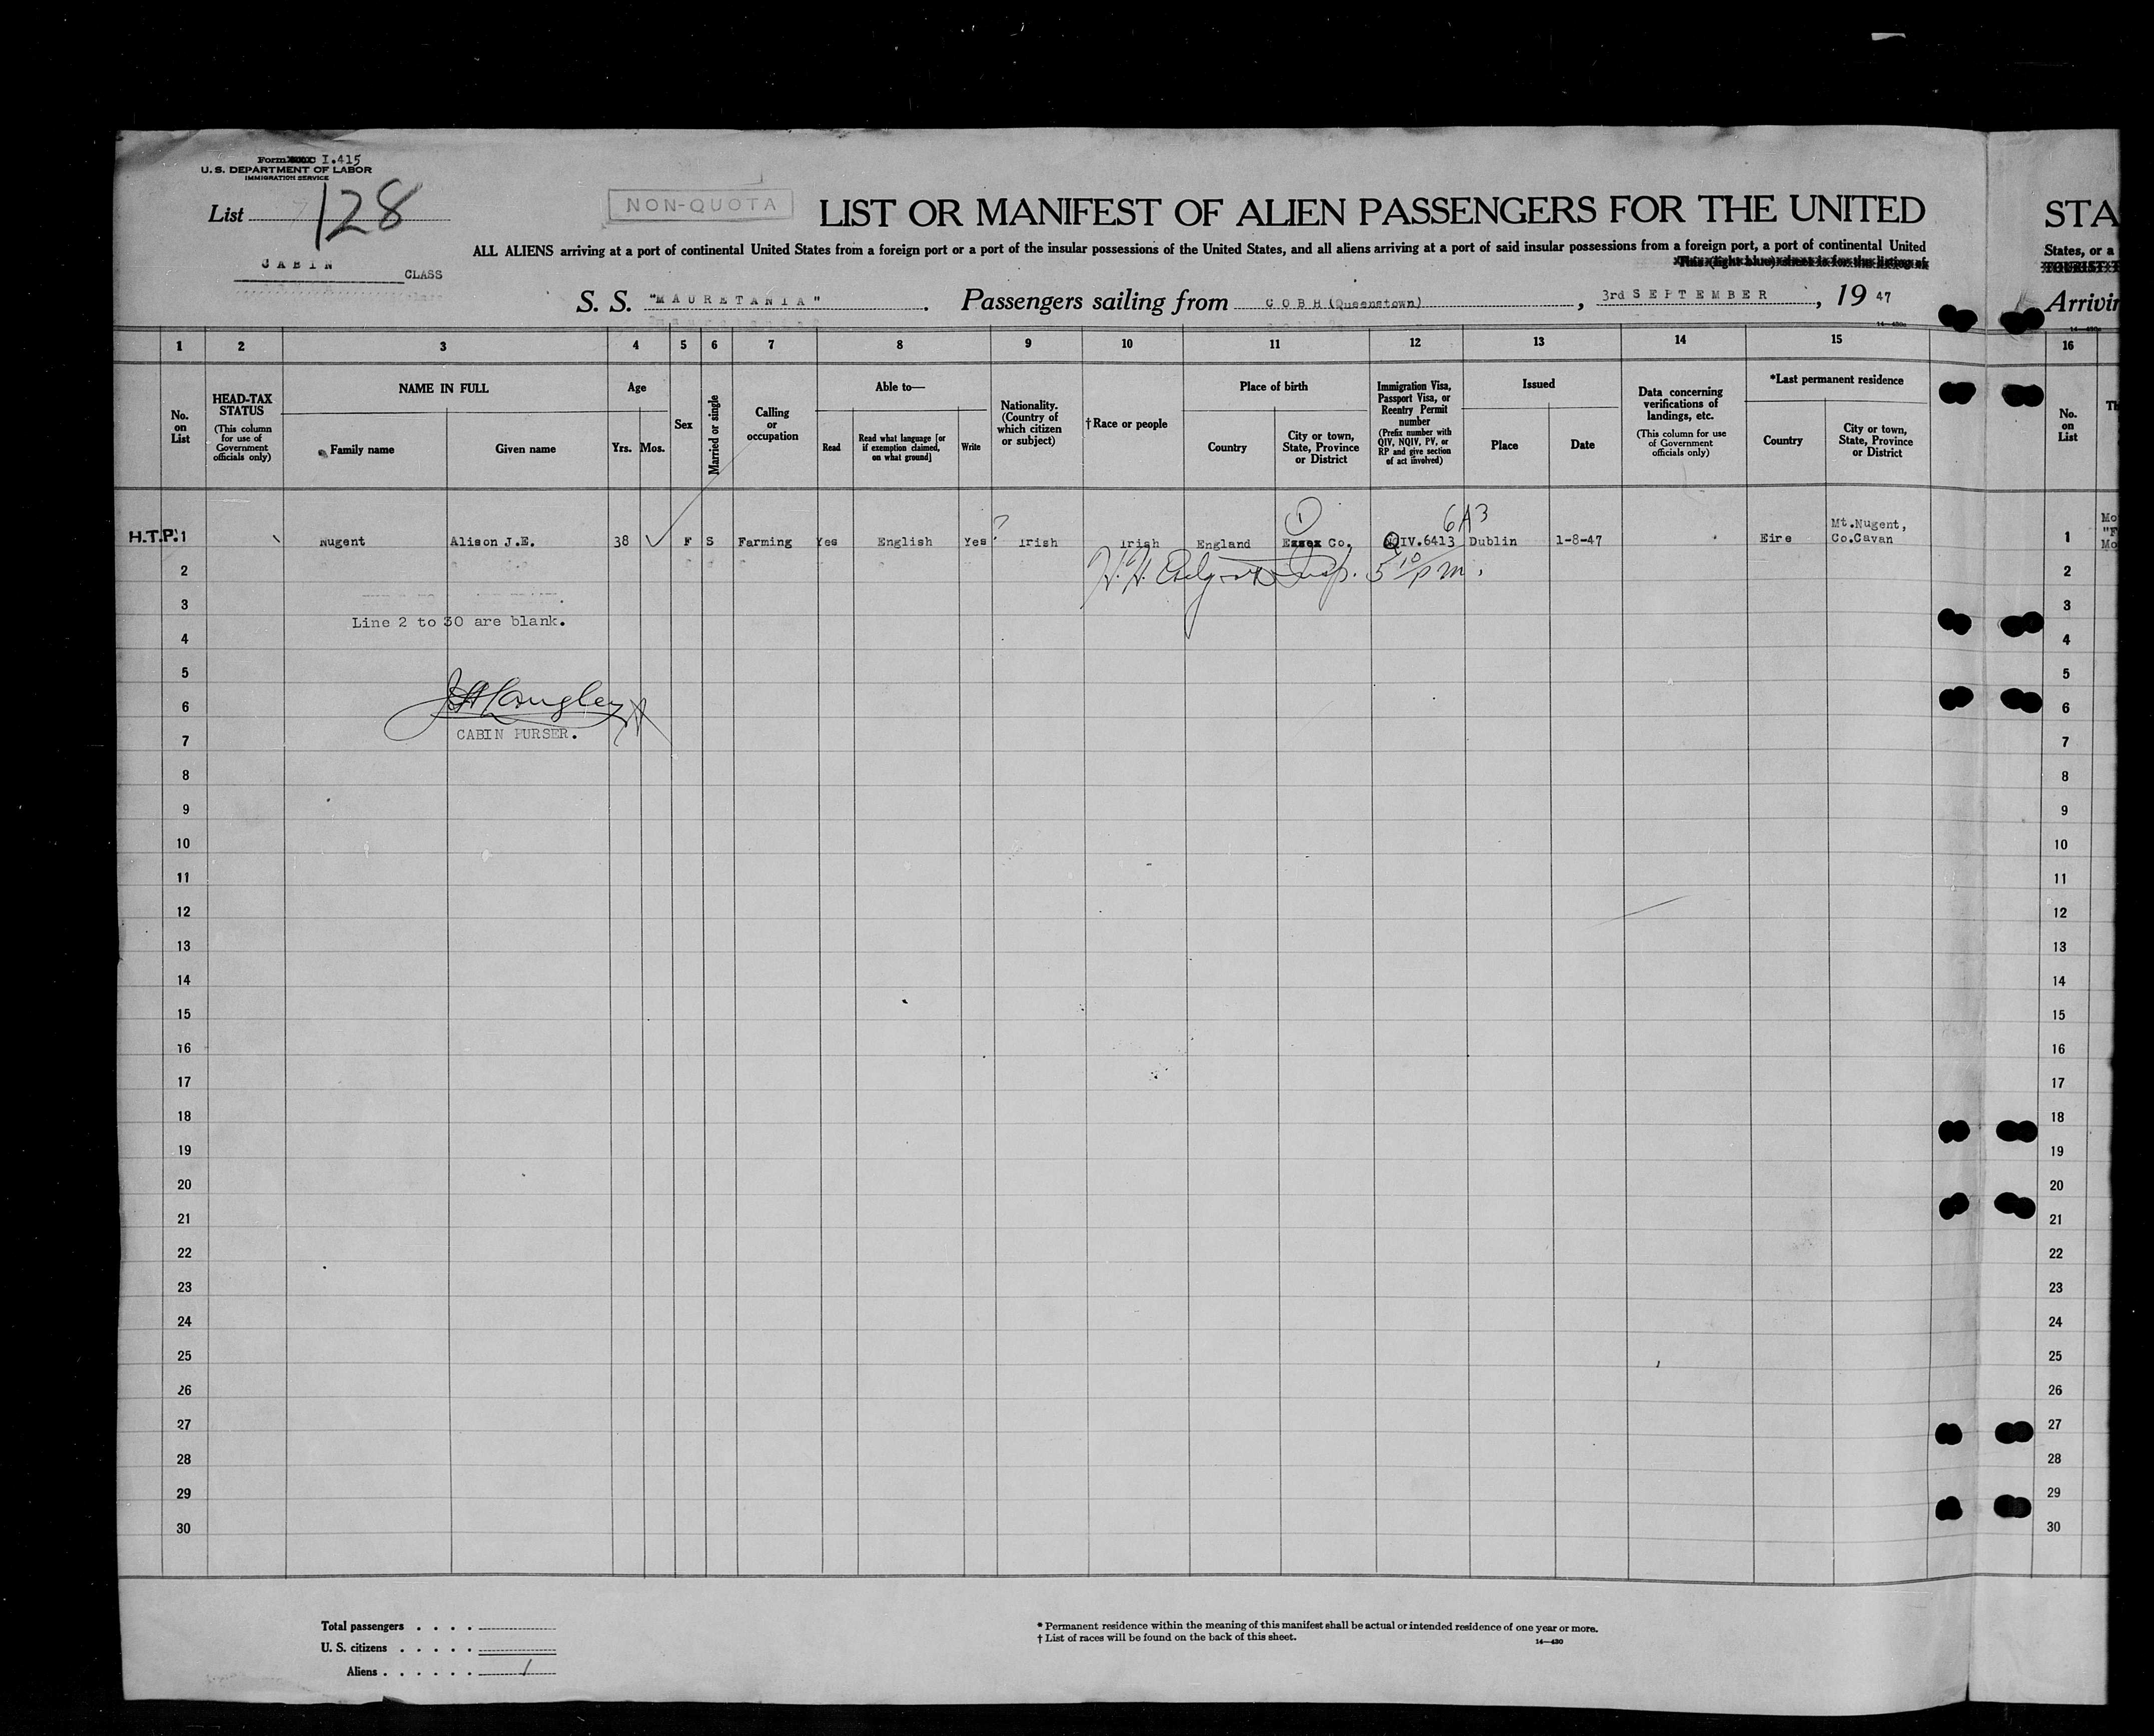 Form I.415
U. S. DEPARTMENT OF LABOR
IMMIGRATION SERVICE
List 128
NON-QUOTA
LIST OR MANIFEST OF ALIEN PASSENGERS FOR THE UNITED
STA
ALL ALIENS arriving at a port of continental United States from a foreign port or a port of the insular possessions of the United States, and all aliens arriving at a port of said insular possessions from a foreign port, a port of continental United
States, or a
This (light blue) sheet is for the listing of
CABIN CLASS
S. S. "MAURETANIA". Passengers sailing from COBH (Queenstown), 3rd SEPTEMBER, 19 47
Arrivin
1 2 3 4 5 6 7 8 9 10 11 12 13 14 15 16
No. on List
HEAD-TAX STATUS (This column for use of Government officials only)
NAME IN FULL
Family name
Given name
Age
Yrs. Mos.
Sex
Married or single
Calling or occupation
Able to—
Read
Read what language [or if exemption claimed, on what ground]
Write
Nationality. (Country of which citizen or subject)
†Race or people
Place of birth
Country
City or town, State, Province or District
Immigration Visa, Passport Visa, or Reentry Permit number (Prefix number with QIV, NQIV, PV, or RP and give section of act involved)
Issued
Place
Date
Data concerning verifications of landings, etc. (This column for use of Government officials only)
*Last permanent residence
Country
City or town, State, Province or District
No. on List
Th
1 6A3
H.T.P. 1 Nugent Alison J.E. 38 F S Farming Yes English Yes ? Irish Irish England Essex Co. QIV.6413 Dublin 1-8-47 Eire Mt.Nugent, Co.Cavan 1
2 H.H. Insp. 5 10 pm. 2
3 3
Line 2 to 30 are blank.
4 4
5 5
6 J.H. Langley 6
CABIN PURSER.
7 7
8 8
9 9
10 10
11 11
12 12
13 13
14 14
15 15
16 16
17 17
18 18
19 19
20 20
21 21
22 22
23 23
24 24
25 25
26 26
27 27
28 28
29 29
30 30
Total passengers
U. S. citizens
Aliens 1
* Permanent residence within the meaning of this manifest shall be actual or intended residence of one year or more.
† List of races will be found on the back of this sheet.
14—430